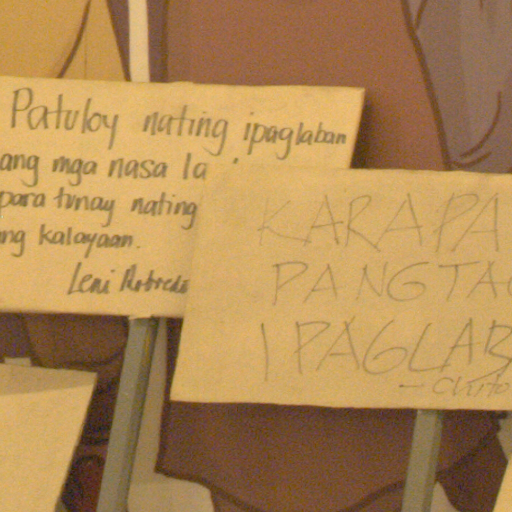 Patuloy nating ipaglaban
ang mga nasa la
para tunay nating
ng kalayaan.
Leni Robredo
KARAPA
PANGTAO
IPAGLAB
- Chito